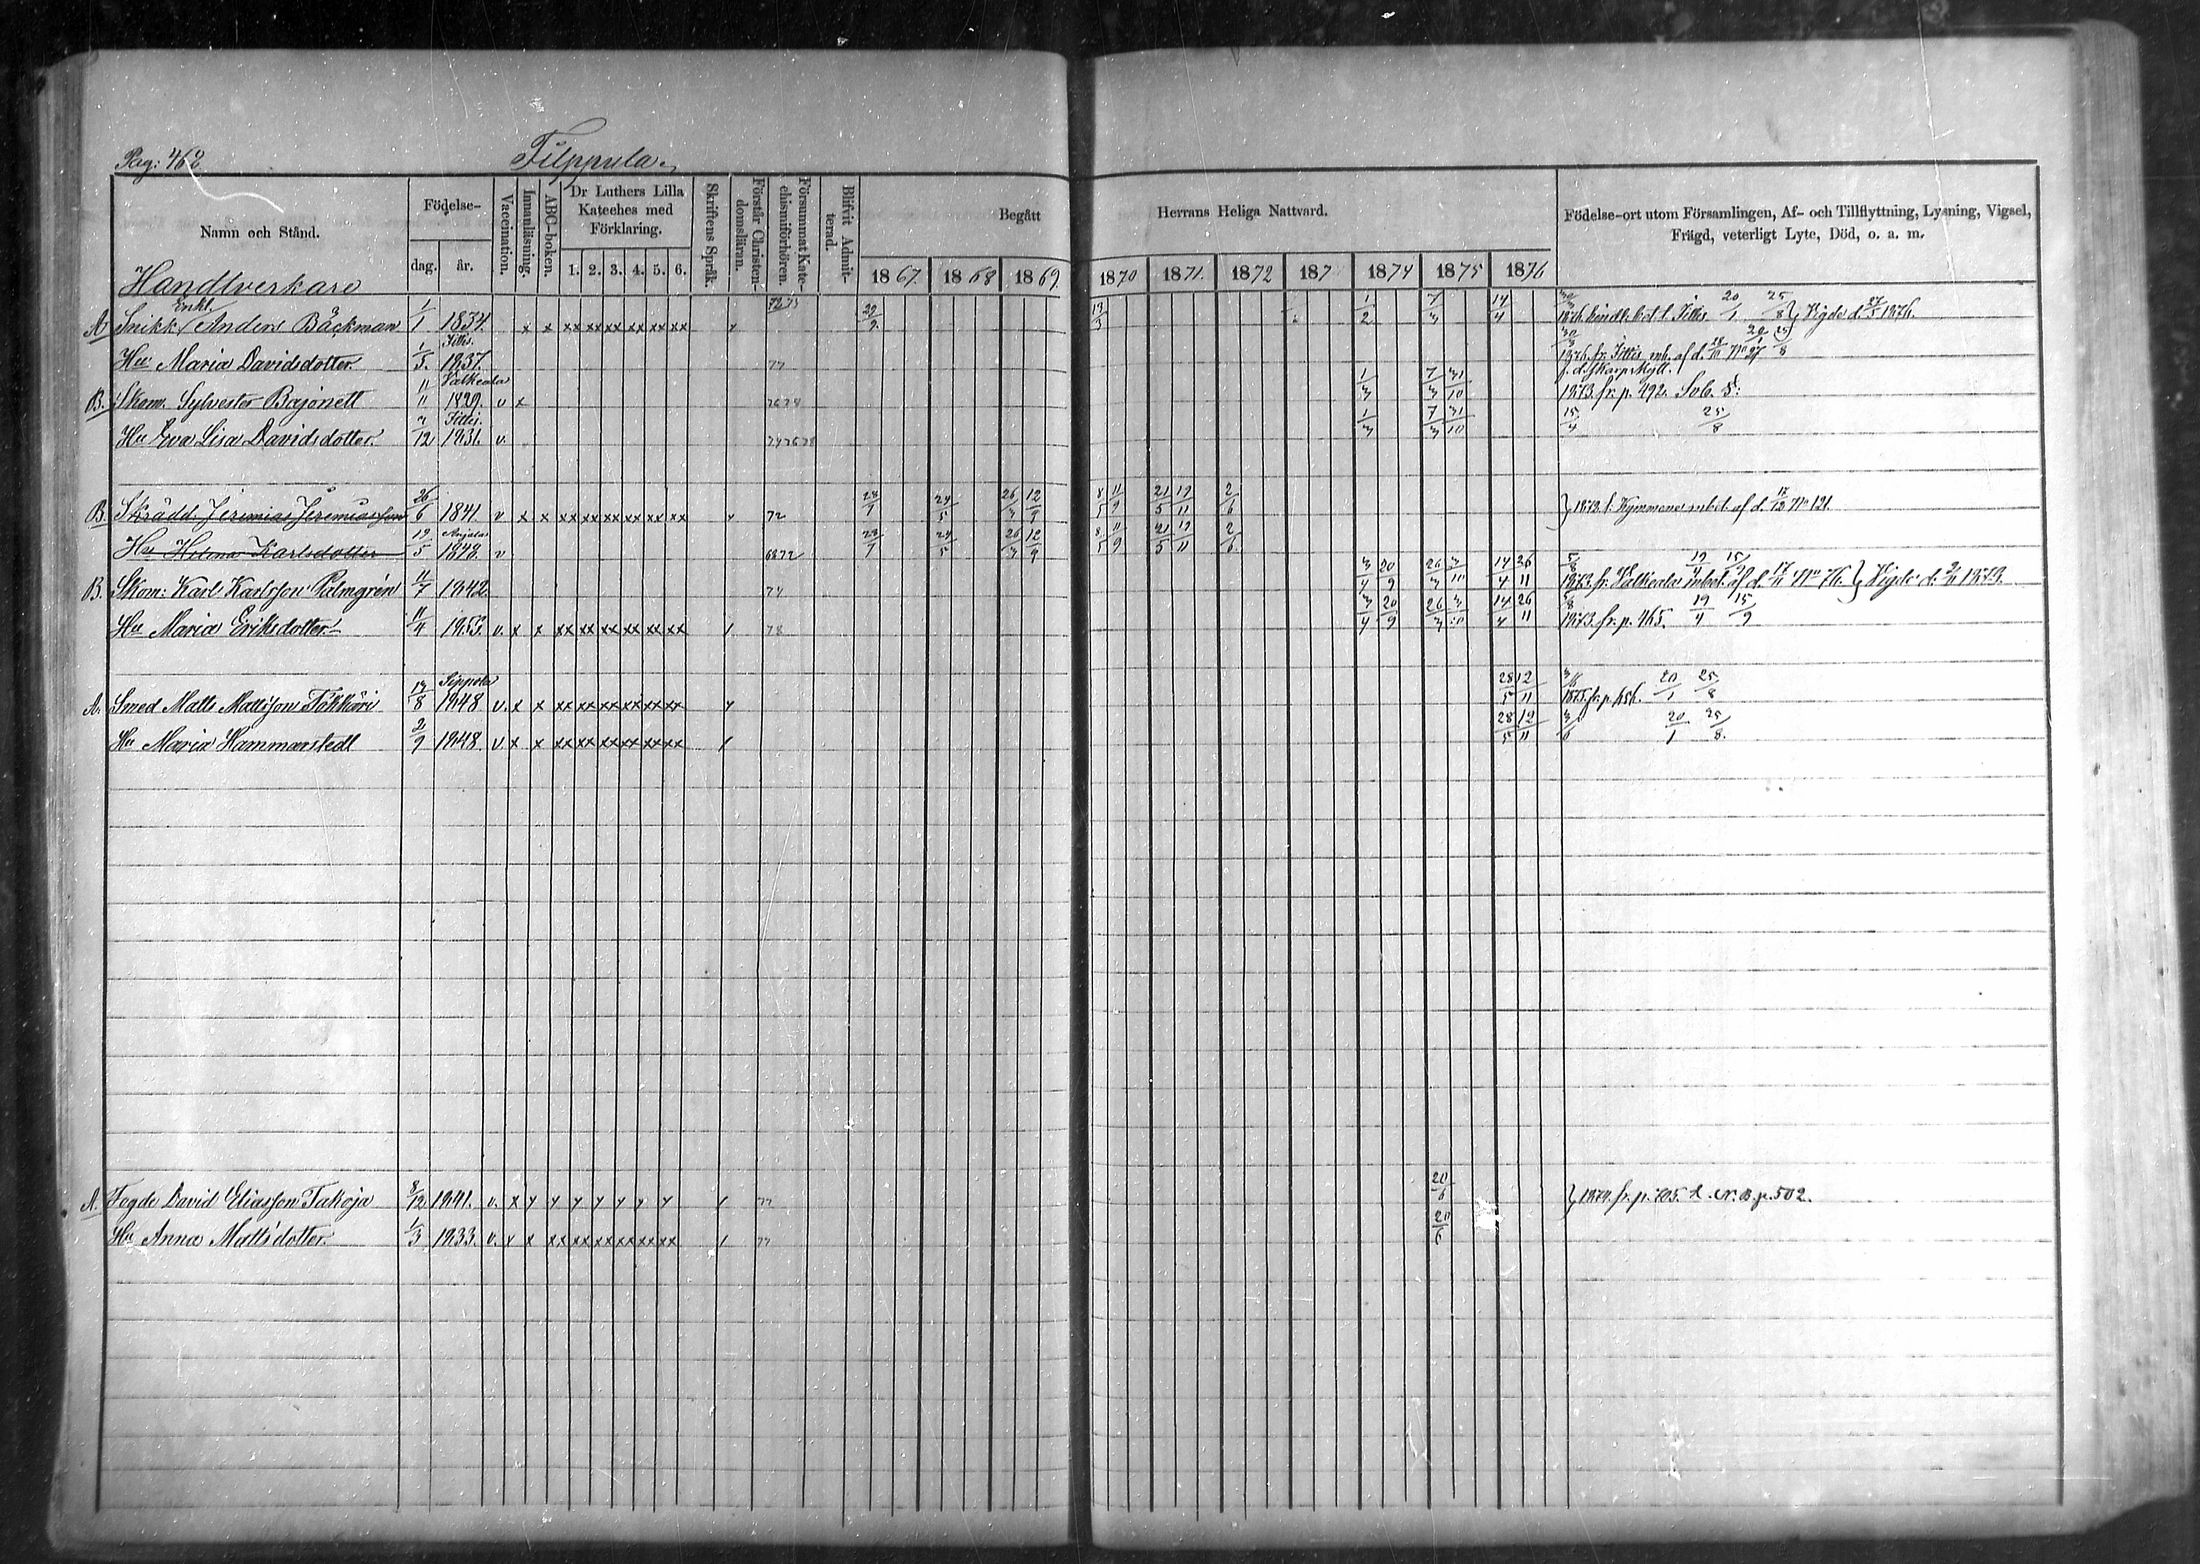 Pag: 462
Filppula.
Namn och Stånd.
Födelse-
dag.
år.
Vaccination.
Innanläsning.
ABC-boken.
Dr Luthers Lilla
Kateches med
Förklaring.
1. 2. 3. 4. 5. 6.
Skriftens Språk.
Förstår Christen-
domsläran.
Försummat Kate-
chismiförhören.
Blifvit Admit-
terad.
Begått
Herrans Heliga Nattvard.
1867. 1868 1869. 1870 1871. 1872 187 1874 1875 1876
Födelse-ort utom Församlingen, Af- och Tillflyttning, Lysning, Vigsel,
Frägd, veterligt Lyte, Död, o. a. m.
Handtverkare
Enkl.
A Snikk. Anders Bäckman 1/1 1834. x x xx xx xx xx xx xx 7275 1/2 7/3 14/4 20/1 25/8 } Vigde d. 27/5 1876.
Hu Maria Davidsdotter 1/5. Jittis. 1837. 77
B. Skom. Sylvester Bajonett 11/11 Valkeala 1829. v x 7678 1/3 7/3 31/10 1873. fr. p. 492.
Hu Eva Lisa Davidsdotter. 7/12 Jittis. 1831. v. 1/3 7/3 31/10 15/4 25/8
B. Skrädd. Jeremias Jeremiasson 26/6 1841. v x x xx xx xx xx xx xx 72 24/5 26/3 12/9 8/5 11/9 21/5 19/11 2/6 } 1873. t. Kymmene mbet. af d. 17/12 No 121.
Hu Helena Karlsdotter 19/5 Anjala 1848. v 6872 24/5 26/3 12/9 8/5 11/9 21/5 19/11 2/6
B. Skom: Karl Karlsson Palmgrén 11/7 1842. 74 3/4 20/9 26/3 3/10 14/4 26/11 1873. fr. Valkeala mbet. af d. 17/11 No 76. } Vigde d. 9/11 1873.
Hu Maria Eriksdotter 11/4 1853. v. x x xx xx xx xx xx xx 78 3/4 20/9 26/3 3/10 14/4 26/11 5/8 1873. fr. p. 465. 19/4 15/9
A. Smed Matts Mattsson Tökkäri 17/8 Sippola 1848 v. x x xx xx xx xx xx xx 28/5 12/11 1875. fr. p. 456. 20/1 25/8
Hu Maria Hammarstedt 2/9 1848. v x x xx xx xx xx xx xx 28/5 12/11 3/6 20/1 25/8.
A. Fogde David Eliasson Takoja 8/12 1841. v. x 77 20/6 } 1874. fr. p. 705. t. N. B. p. 502.
Hu Anna Mattsdotter. 1/3 1833. v. v x xx xx xx xx xx xx 77 20/6